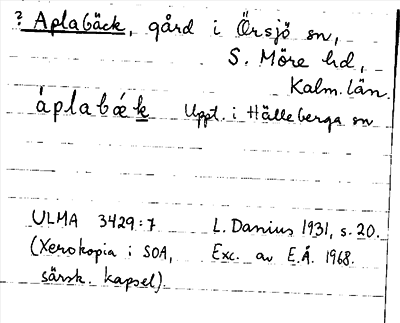 ? Aplabäck, gård i Örsjö sn,
S. Möre hd,
Kalm. län.
áplabǽk Uppt. i Hälleberga sn
ULMA 3429:7 L. Danius 1931, s. 20.
(Xerokopia i SOA, Exc. av E.Å. 1968.
särsk. kapsel)